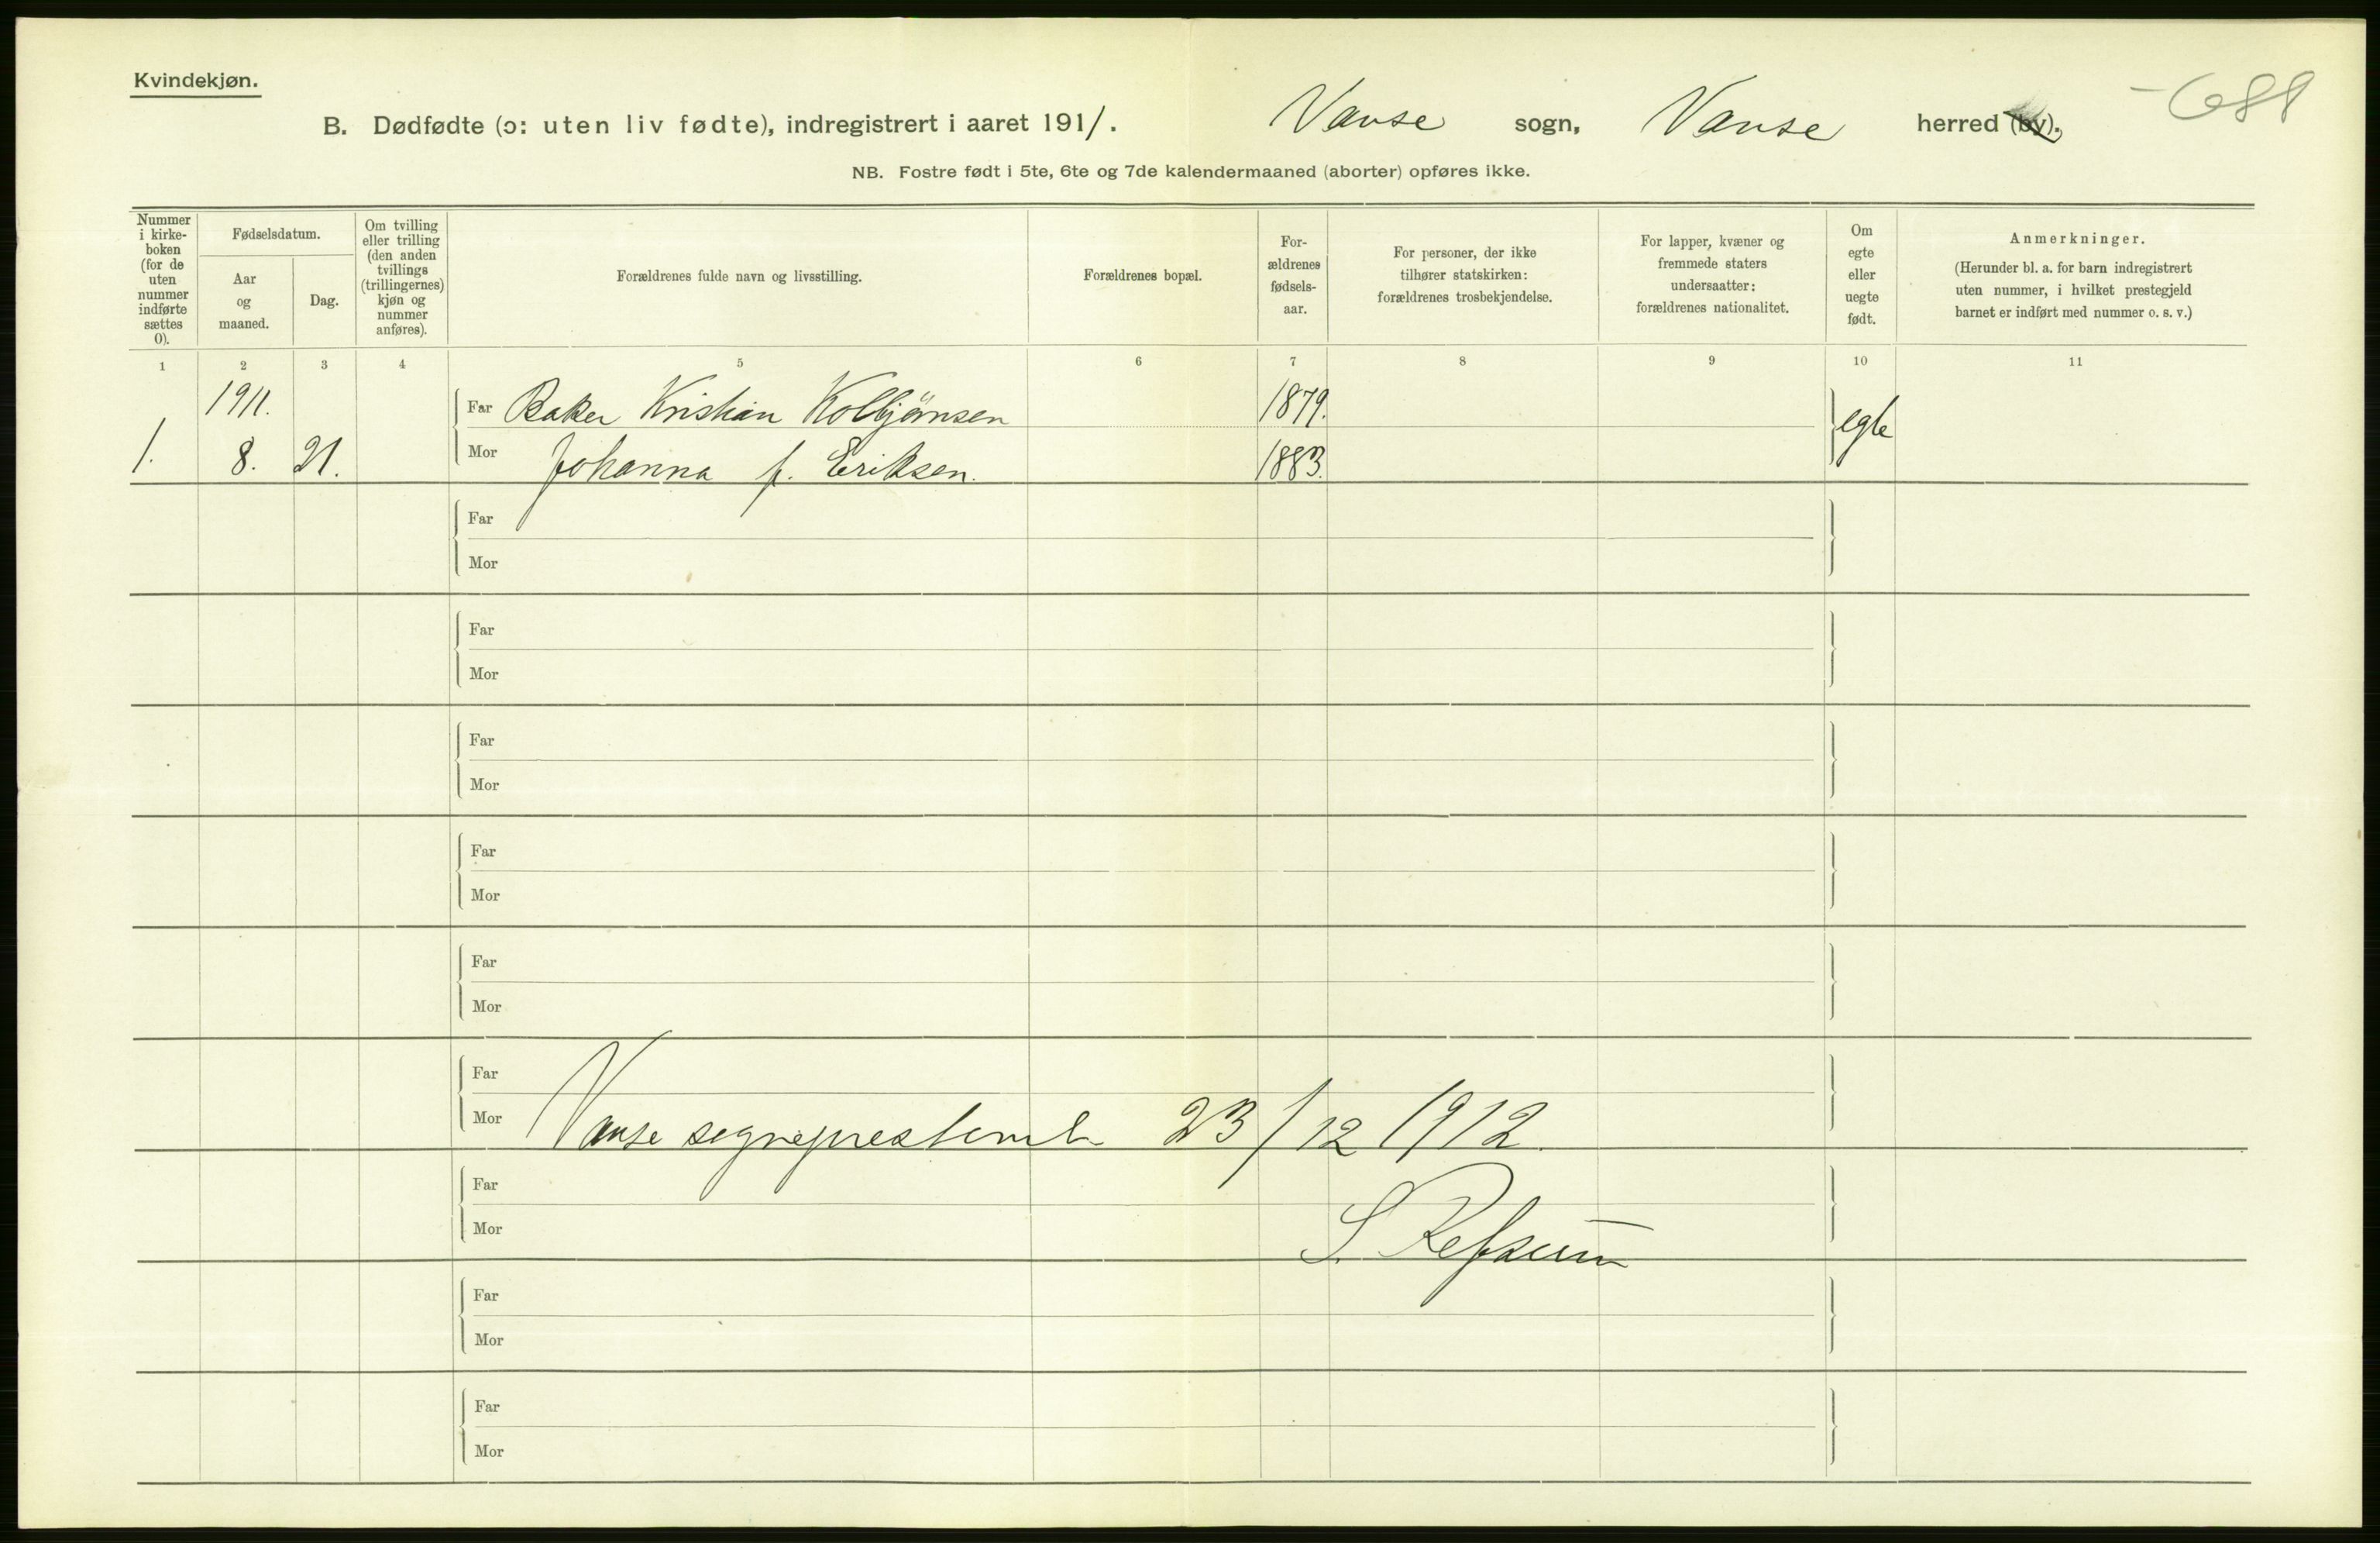 Kvindekjøn.
-688
B. Dødfødte (ɔ: uten liv fødte), indregistrert i aaret 1911. Vanse sogn, Vanse herred (by).
NB. Fostre født i 5te, 6te og 7de kalendermaaned (aborter) opføres ikke.
Nummer i kirke-boken (for de uten nummer indførte sættes 0).
Fødselsdatum.
Aar og maaned.
Dag.
Om tvilling eller trilling (den anden tvillings (trillingernes) kjøn og nummer anføres).
Forældrenes fulde navn og livsstilling.
Forældrenes bopæl.
For-ældrenes fødsels-aar.
For personer, der ikke tilhører statskirken: forældrenes trosbekjendelse.
For lapper, kvæner og fremmede staters undersaatter: forældrenes nationalitet.
Om egte eller uegte født.
Anmerkninger.
(Herunder bl. a. for barn indregistrert uten nummer, i hvilket prestegjeld barnet er indført med nummer o. s. v.)
1 2 3 4 5 6 7 8 9 10 11
1911. Far Baker Kristian Kolbjørnsen 1879. egte
1. 8. 21. Mor Johanna f. Eriksen. 1883.
Far
Mor
Far
Mor
Far
Mor
Far
Mor
Far
Mor
Far
Mor Vanse sogneprestemb 23/12 1912.
Far
Mor S. Refsum
Far
Mor
Far
Mor